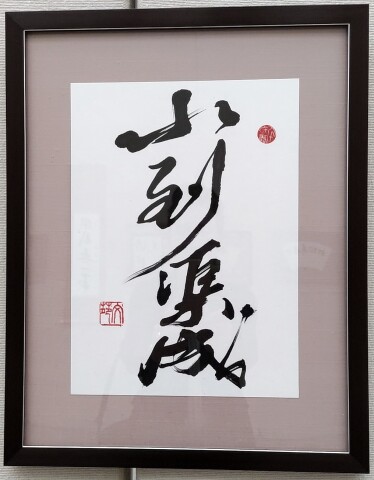 水到渠成